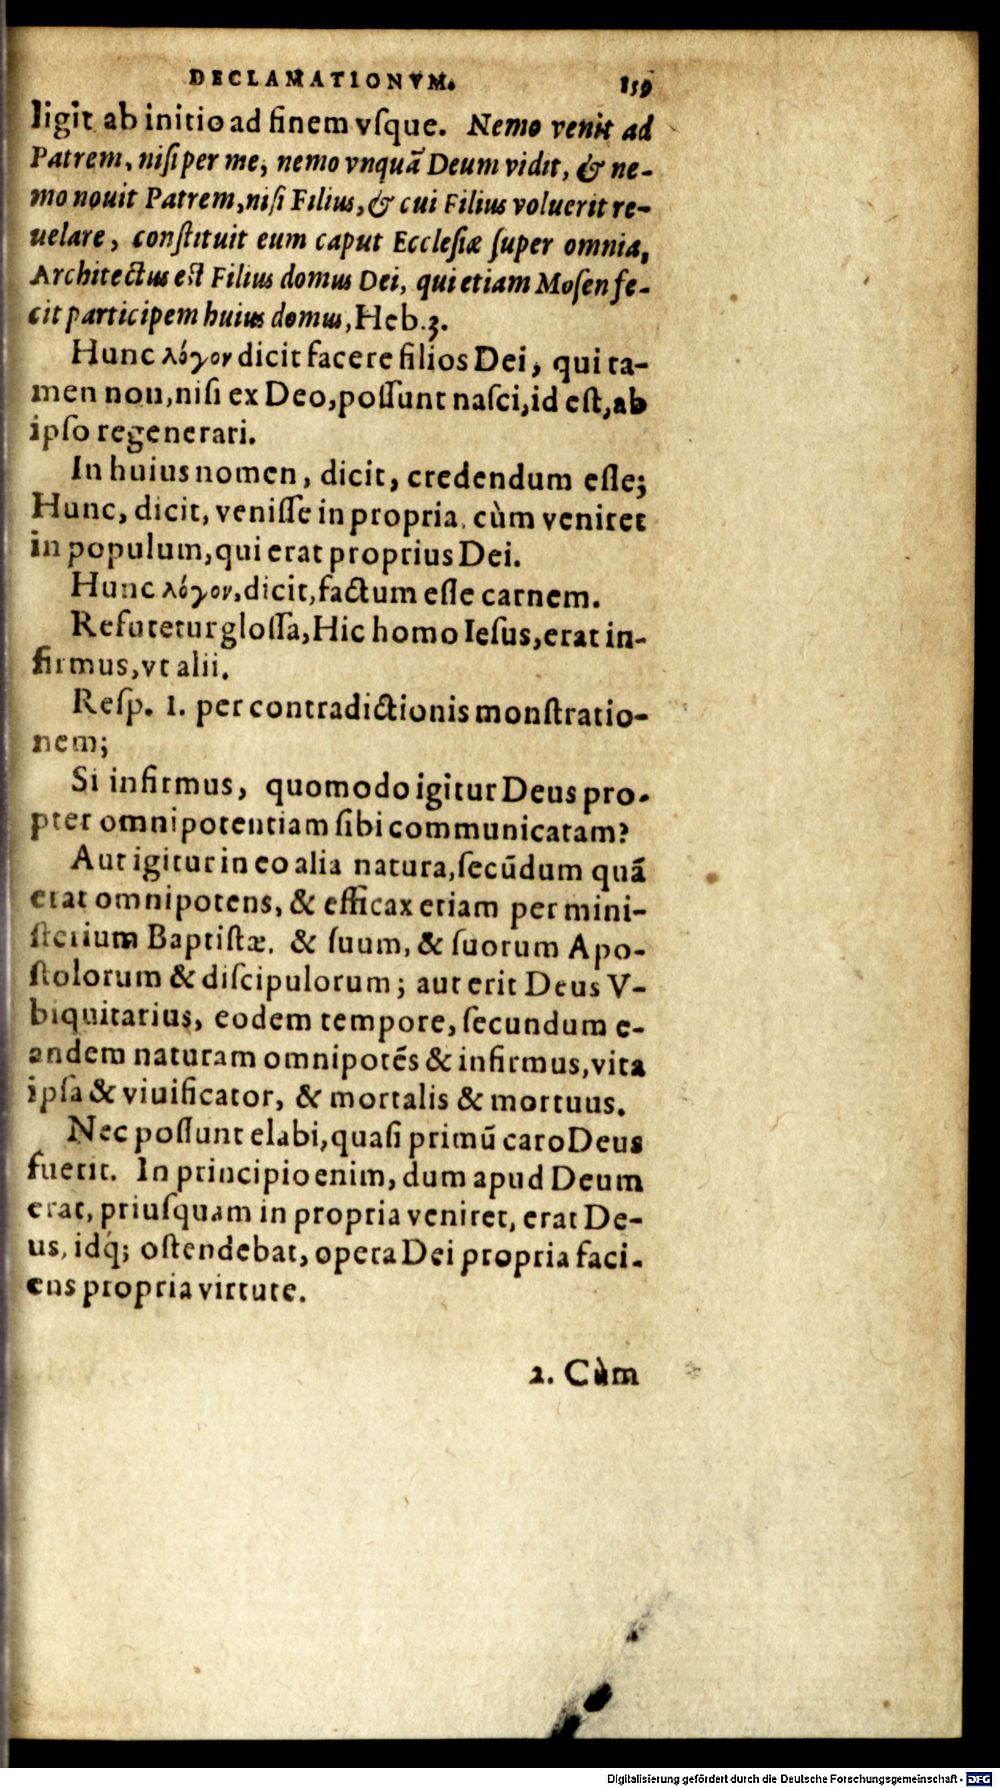 DECLAMATIONVM. 159
ligit ab initio ad finem vſque. Nemo venit ad
Patrem, niſi per me, nemo vnquã Deum vidit, & ne-
mo nouit Patrem, niſi Filius, & cui Filius voluerit re-
uelare, conſtituit eum caput Eccleſiæ ſuper omnia,
Architectus eſt Filius domus Dei, qui etiam Moſen fe-
cit participem huius domus, Heb.3.
Hunc λόγον dicit facere filios Dei, qui ta-
men non, niſi ex Deo, poſſunt naſci, id eſt, ab
ipſo regenerari.
In huius nomen, dicit, credendum eſſe;
Hunc, dicit, veniſſe in propria, cùm veniret
in populum, qui erat proprius Dei.
Hunc λόγον, dicit, factum eſſe carnem.
Refutetur gloſſa, Hic homo Ieſus, erat in-
firmus, vt alii.
Reſp. 1. per contradictionis monſtratio-
nem;
Si infirmus, quomodo igitur Deus pro-
pter omnipotentiam ſibi communicatam?
Aut igitur in eo alia natura, ſecũdum quã
erat omnipotens, & efficax etiam per mini-
ſterium Baptiſtæ, & ſuum, & ſuorum Apo-
ſtolorum & diſcipulorum; aut erit Deus V-
biquitarius, eodem tempore, ſecundum e-
andem naturam omnipotẽs & infirmus, vita
ipſa & viuificator, & mortalis & mortuus.
Nec poſſunt elabi, quaſi primũ caro Deus
fuerit. In principio enim, dum apud Deum
erat, priuſquam in propria veniret, erat De-
us, idq́; oſtendebat, opera Dei propria faci-
ens propria virtute.
2. Cùm
Digitalisierung gefördert durch die Deutsche Forschungsgemeinschaft - DFG